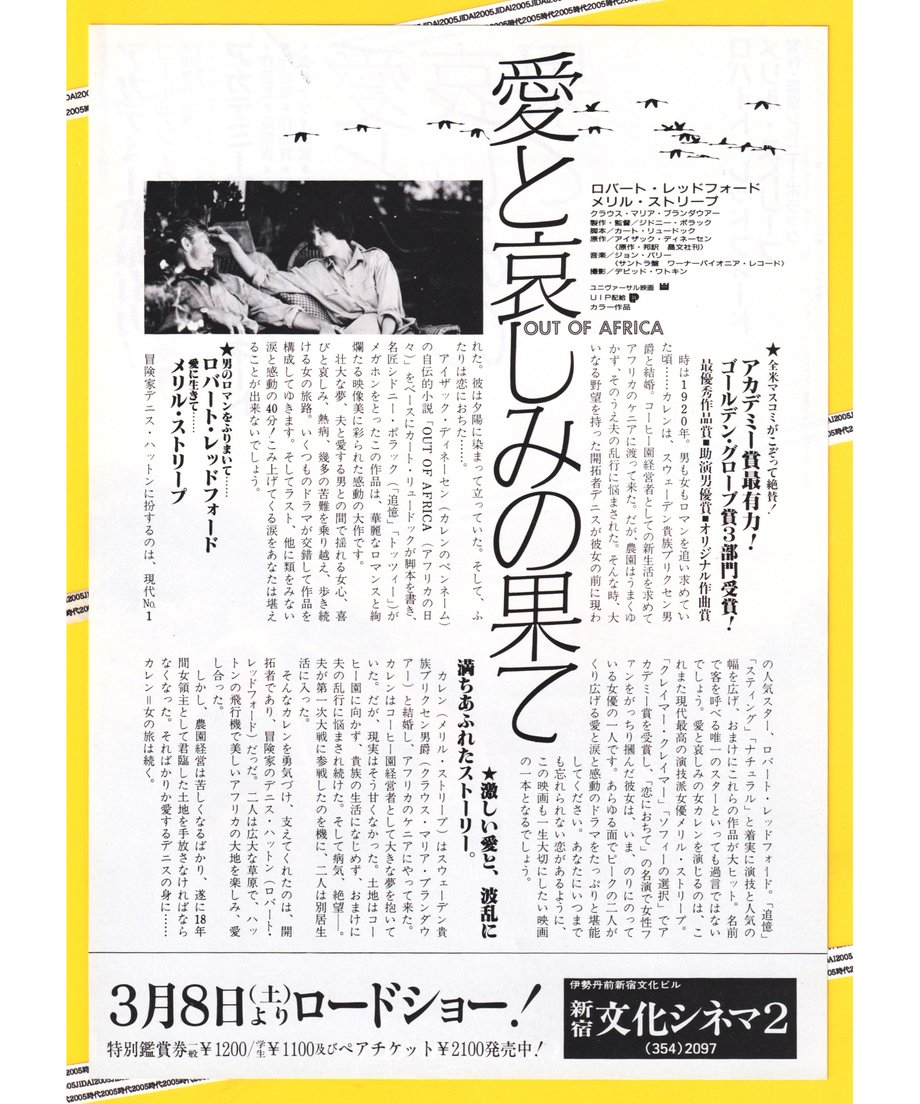 JIDAI2005JIDAI2005時代2005時代2005時代2005時代
愛と哀しみの果て
OUT OF AFRICA
ロバート・レッドフォード
メリル・ストリープ
クラウス・マリア・ブランダウアー
製作・監督／シドニー・ポラック
脚本／カート・リュードック
原作／アイザック・ディネーセン
（原作・邦訳　晶文社刊）
音楽／ジョン・バリー
（サントラ盤　ワーナーパイオニア・レコード）
撮影／デビッド・ワトキン
ユニヴァーサル映画
UIP配給
カラー作品
★全米マスコミがこぞって絶賛！
アカデミー賞最有力！
ゴールデン・グローブ賞3部門受賞！
最優秀作品賞■助演男優賞■オリジナル作曲賞
時は1920年。男も女もロマンを追い求めてい
た頃……カレンは、スウェーデン貴族ブリクセン男
爵と結婚。コーヒー園経営者としての新生活を求めて
アフリカのケニアに渡って来た。だが、農園はうまくゆ
かず、そのうえ夫の乱行に悩まされた。そんな時、大
いなる野望を持った開拓者デニスが彼女の前に現わ
れた。彼は夕陽に染まって立っていた。そして、ふ
たりは恋におちた……。
アイザック・ディネーセン（カレンのペンネーム）
の自伝的小説「OUT OF AFRICA（アフリカの日
々）」をベースにカート・リュードックが脚本を書き、
名匠シドニー・ポラック（「追憶」「トッツィー」）が
メガホンをとったこの作品は、華麗なロマンスと絢
爛たる映像美に彩られた感動の大作です。
壮大な夢、夫と愛する男との間で揺れる女心、喜
びと哀しみ、熱病、幾多の苦難を乗り越え、歩き続
ける女の旅路。いくつものドラマが交錯して作品を
構成してゆきます。そしてラスト、他に類をみない
涙と感動の40分！こみ上げてくる涙をあなたは堪え
ることが出来ないでしょう。
★男のロマンをふりまいて……
ロバート・レッドフォード
愛に生きて……
メリル・ストリープ
冒険家デニス・ハットンに扮するのは、現代No.1
の人気スター、ロバート・レッドフォード。「追憶」
「スティング」「ナチュラル」と着実に演技と人気の
幅を広げ、おまけにこれらの作品が大ヒット。名前
で客を呼べる唯一のスターといっても過言ではない
でしょう。愛と哀しみの女カレンを演じるのは、こ
れまた現代最高の演技派女優メリル・ストリープ。
「クレイマー・クレイマー」「ソフィーの選択」でア
カデミー賞を受賞し、「恋におちて」の名演で女性フ
ァンをがっちり摑んだ彼女は、いま、のりにのって
いる女優の一人です。あらゆる面でピークの二人が
くり広げる愛と涙と感動のドラマをたっぷりと堪能
してください。あなたにいつまで
も忘れられない恋があるように、
この映画も一生大切にしたい映画
の一本となるでしょう。
★激しい愛と、波乱に
満ちあふれたストーリー。
カレン（メリル・ストリープ）はスウェーデン貴
族ブリクセン男爵（クラウス・マリア・ブランダウ
アー）と結婚し、アフリカのケニアにやって来た。
カレンはコーヒー園経営者として大きな夢を抱いて
いた。だが、現実はそう甘くなかった。土地はコー
ヒー園に向かず、貴族の生活になじめず、おまけに
夫の乱行に悩まされ続けた。そして病気、絶望――。
夫が第一次大戦に参戦したのを機に、二人は別居生
活に入った。
そんなカレンを勇気づけ、支えてくれたのは、開
拓者であり、冒険家のデニス・ハットン（ロバート・
レッドフォード）だった。二人は広大な草原で、ハッ
トンの飛行機で美しいアフリカの大地を楽しみ、愛
し合った。
しかし、農園経営は苦しくなるばかり、遂に18年
間女領主として君臨した土地を手放さなければなら
なくなった。そればかりか愛するデニスの身に……
カレン＝女の旅は続く。
3月8日（土）よりロードショー！
特別鑑賞券一般￥1200/学生￥1100及びペアチケット￥2100発売中！
伊勢丹前新宿文化ビル
新宿文化シネマ2
（354）2097